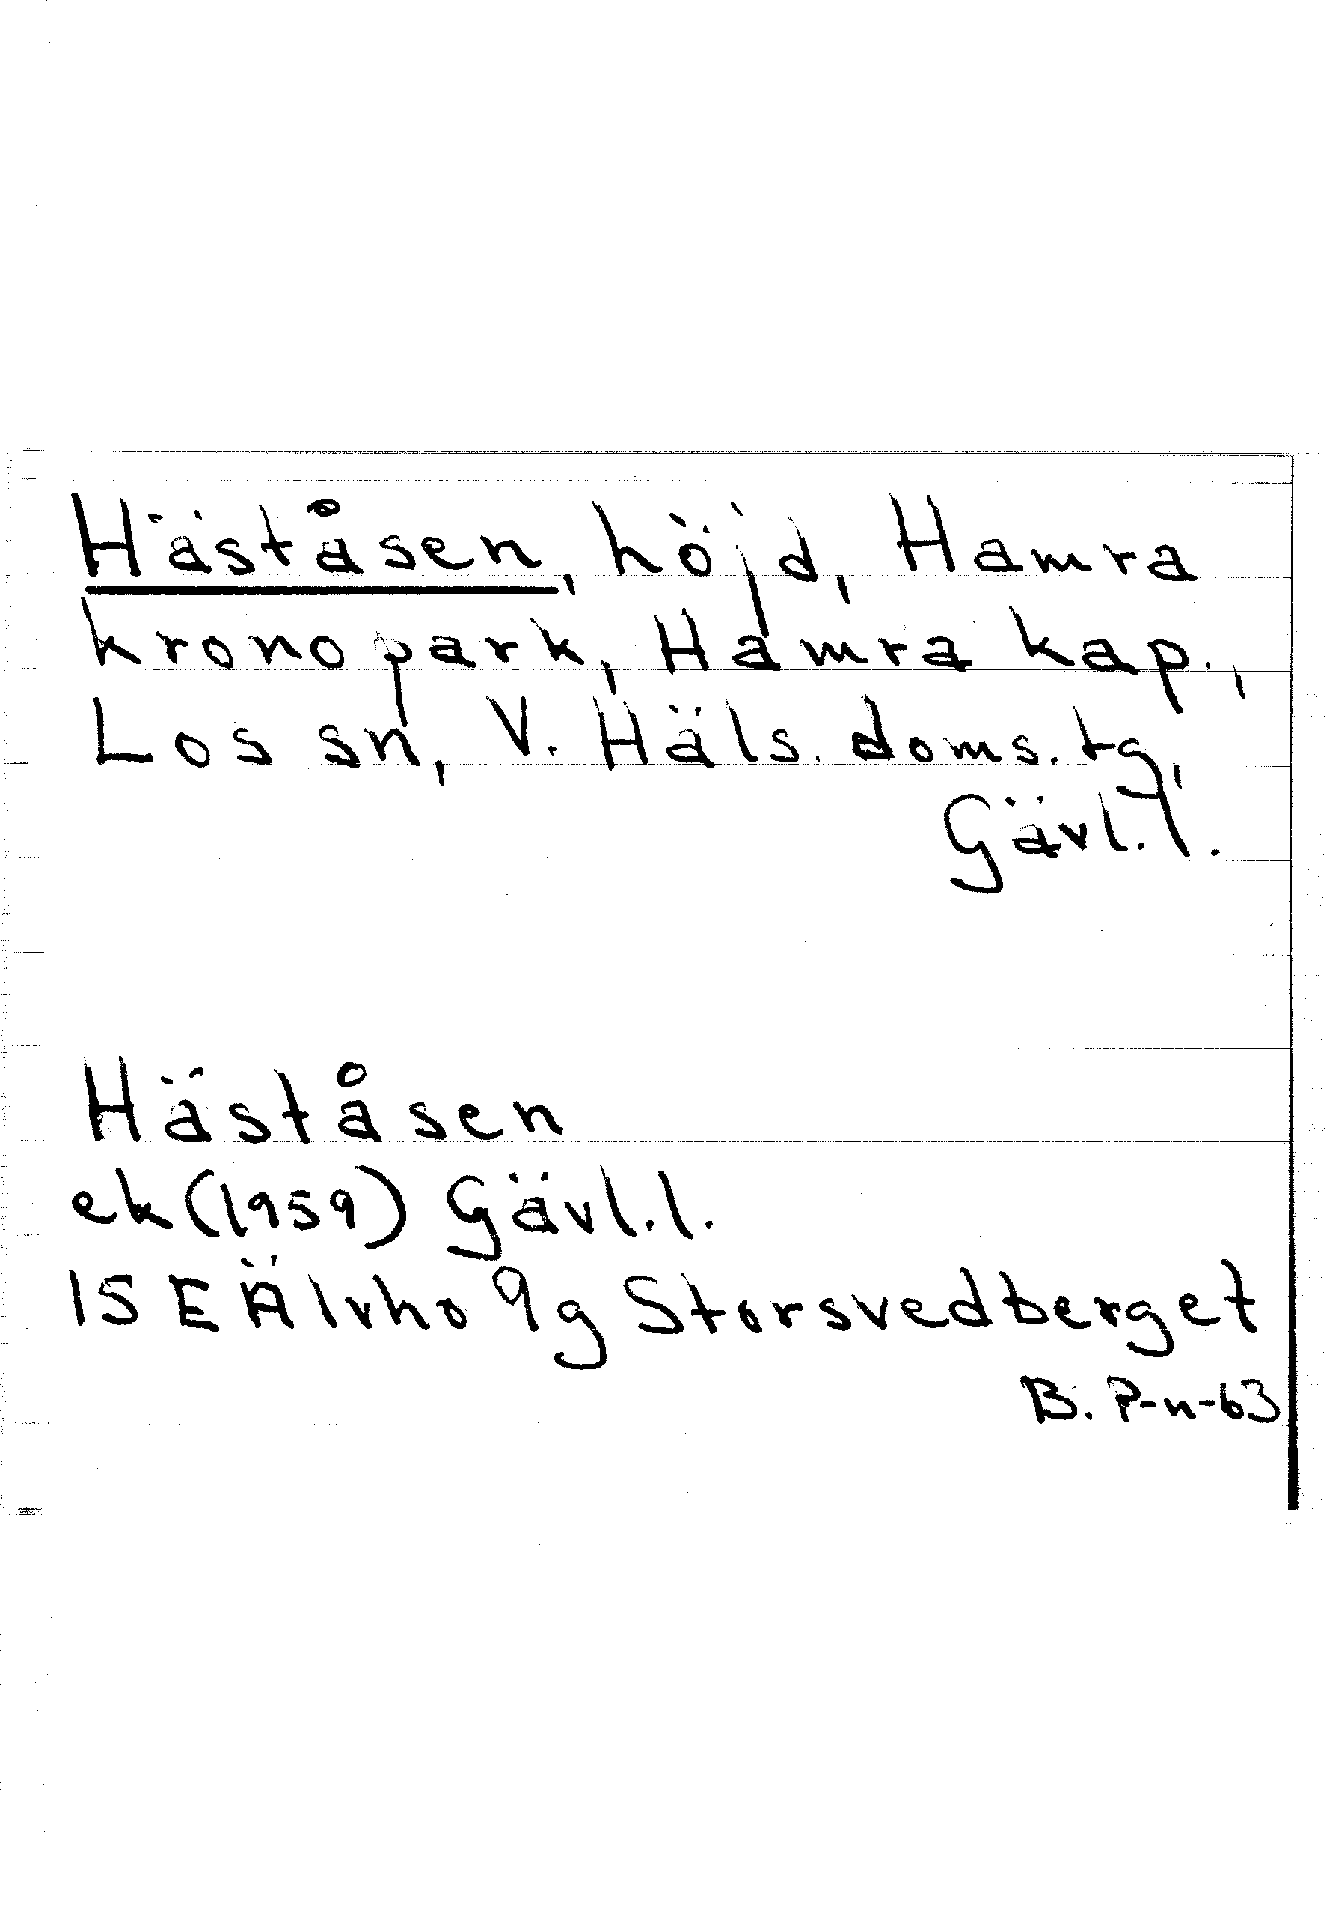 Häståsen, höjd, Hamra
kronopark, Hamra kap.,
Los sn, V. Häls. doms. tg,
Gävl. l.
Häståsen
ek (1959) Gävl. l.
15 E Älvho 9g Storsvedberget
B. P-n-63